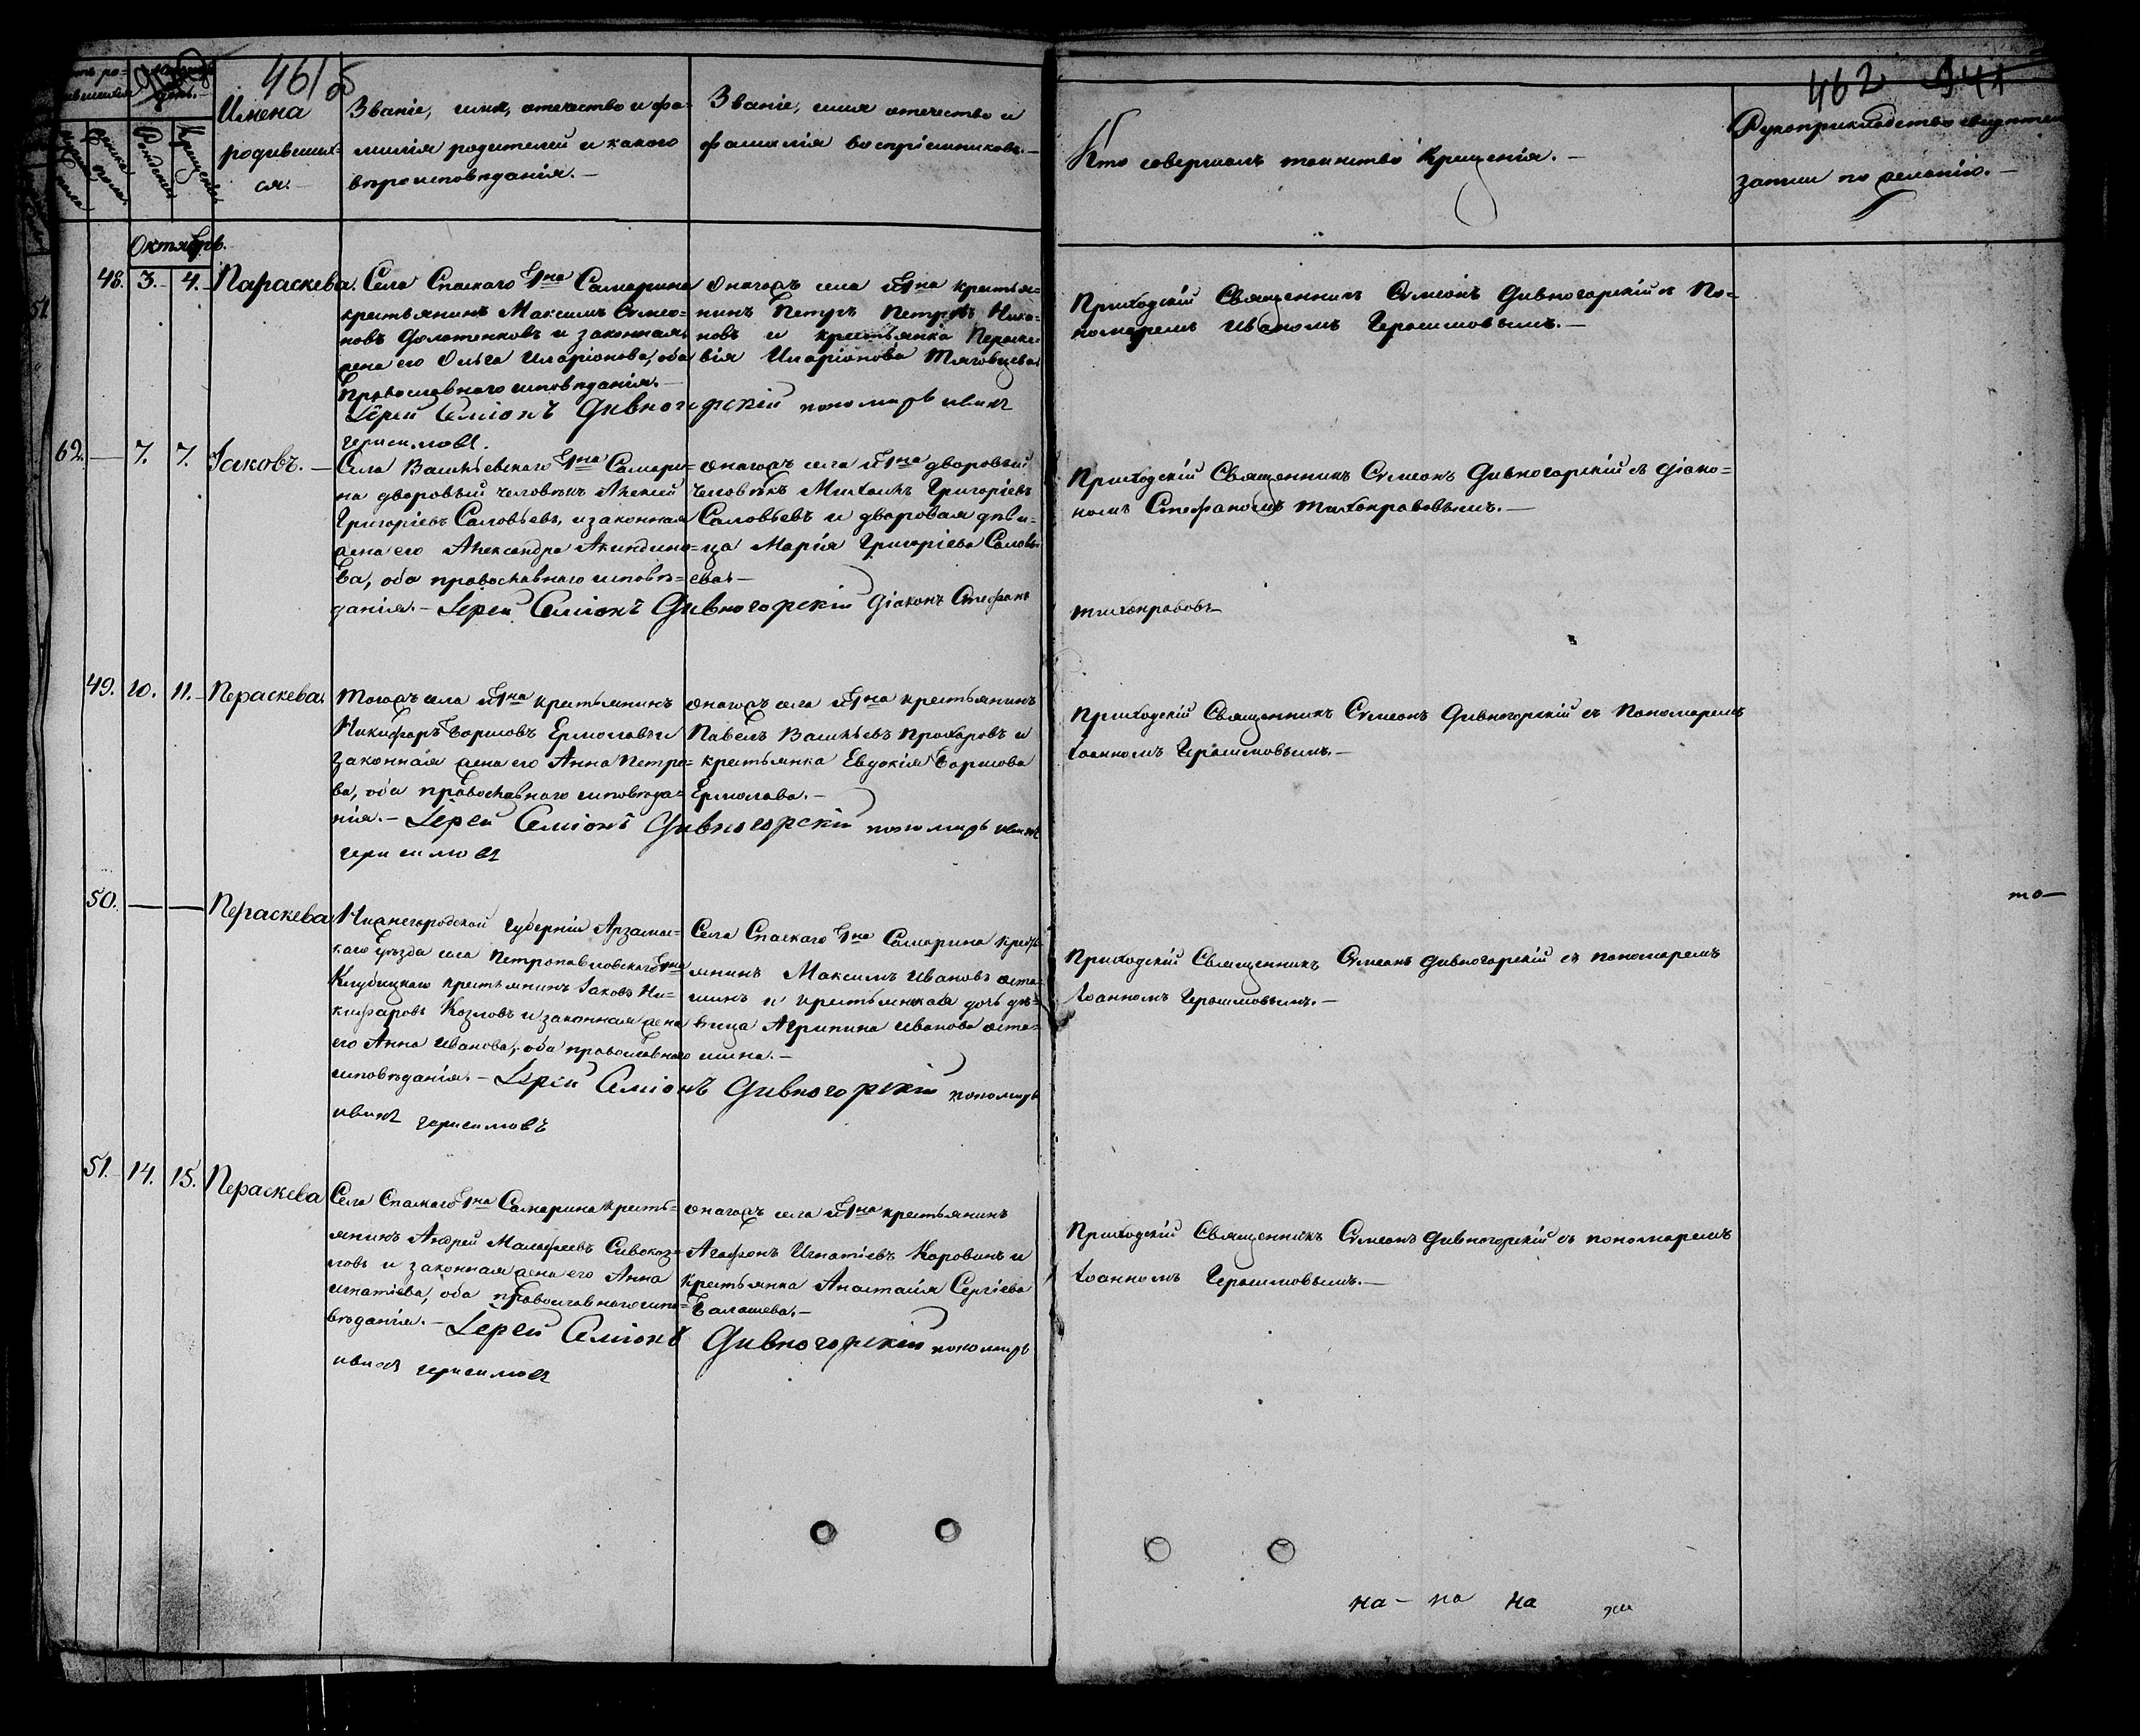 461 об
462
941
Имена
родивших-
ся. —
Званіе, имя, отечество и фа-
милія родителей и какого
вѣроисповѣданія. —
Званіе, имя отечество и
фамилія воспріемниковъ. —
Кто совершалъ таинство крещенія. —
Рукоприкладство свидѣтелей
записи по желанію. —
Октябрь.
48. 3. 4. Параскева.
Села Спаскаго тна Самарина
крестьянинъ Максимъ Сѵмео-
новъ и законная
жена его Ольга Иларіонова, оба
православнаго исповѣданія. —
Іерей Семіонъ Дивногорскій пономарь иванъ
герасимовъ.
онагожъ села и тна крестья-
нинъ Петръ Петровъ Ника-
новъ и крестьянка Параске-
вія Иларіонова
Приходскій Священникъ Сѵмеонъ Дивногорскій съ По-
номаремъ Иваномъ Герасимовымъ. —
62. — 7. 7. Іаковъ. —
Села Васильевскаго тна Самари-
на дворовый человѣкъ Алексій
Григоріевъ Саловьевъ, и законная
жена его Александра Акиндино-
ва, оба православнаго исповѣ-
данія. — Іерей Семіонъ Дивногорскій Діаконъ Стефанъ
Тихонравовъ
онагожъ села и тна дворовый
человѣкъ Михаилъ Григоріевъ
Саловьевъ и дворовая дѣви-
ца Марія Григоріева Саловь-
ева. —
Приходскій Священникъ Сѵмеонъ Дивногорскій съ Діако-
номъ Стефаномъ Тихонравовымъ. —
49. 10. 11. Пераскева.
Тогожъ села и тна крестьянинъ
Никифоръ Борисовъ Ермолаевъ и
законная жена его Анна Петро-
ва, оба православнаго исповѣда-
нія. — Іерей Семіонъ Дивногорскій пономарь иванъ
герасимовъ
онагожъ села и тна крестьянинъ
Павелъ Васильевъ Прохоровъ и
крестьянка Евдокія Борисова
Ермолаева. —
Приходскій Священникъ Сѵмеонъ Дивногорскій съ Пономаремъ
Іоанномъ Герасимовымъ. —
50. — — Пераскева
Нижегородской губерніи Арзамас-
каго уѣзда села Петропавловскаго тна
крестьянинъ Іаковъ Ни-
кифоровъ Козловъ и законная жена
его Анна Иванова, оба православнаго
исповѣданія. — Іерей Семіонъ Дивногорскій пономарь
иванъ герасимовъ
Села Спаскаго тна Самарина кресть-
янинъ Максимъ Ивановъ Аста-
шинъ и крестьянская дочь дѣ-
вица Агрипина Иванова Аста-
шина. —
Приходскій Священникъ Сѵмеонъ Дивногорскій съ пономаремъ
Іоанномъ Герасимовымъ. —
то —
51. 14. 15. Пераскева
Села Спаскаго тна Самарина кресть-
янинъ Андрей Малафеевъ Сивокоз-
ловъ и законная жена его Анна
Игнатіева, оба православнаго испо-
вѣданія. — Іерей Семіонъ Дивногорскій пономарь
иванъ герасимовъ
онагожъ села и тна крестьянинъ
Агафонъ Игнатіевъ Коровинъ и
крестьянка Анастасія Сергіева
Балашева. —
Приходскій Священникъ Сѵмеонъ Дивногорскій съ пономаремъ
Іоанномъ Герасимовымъ. —
на — на на